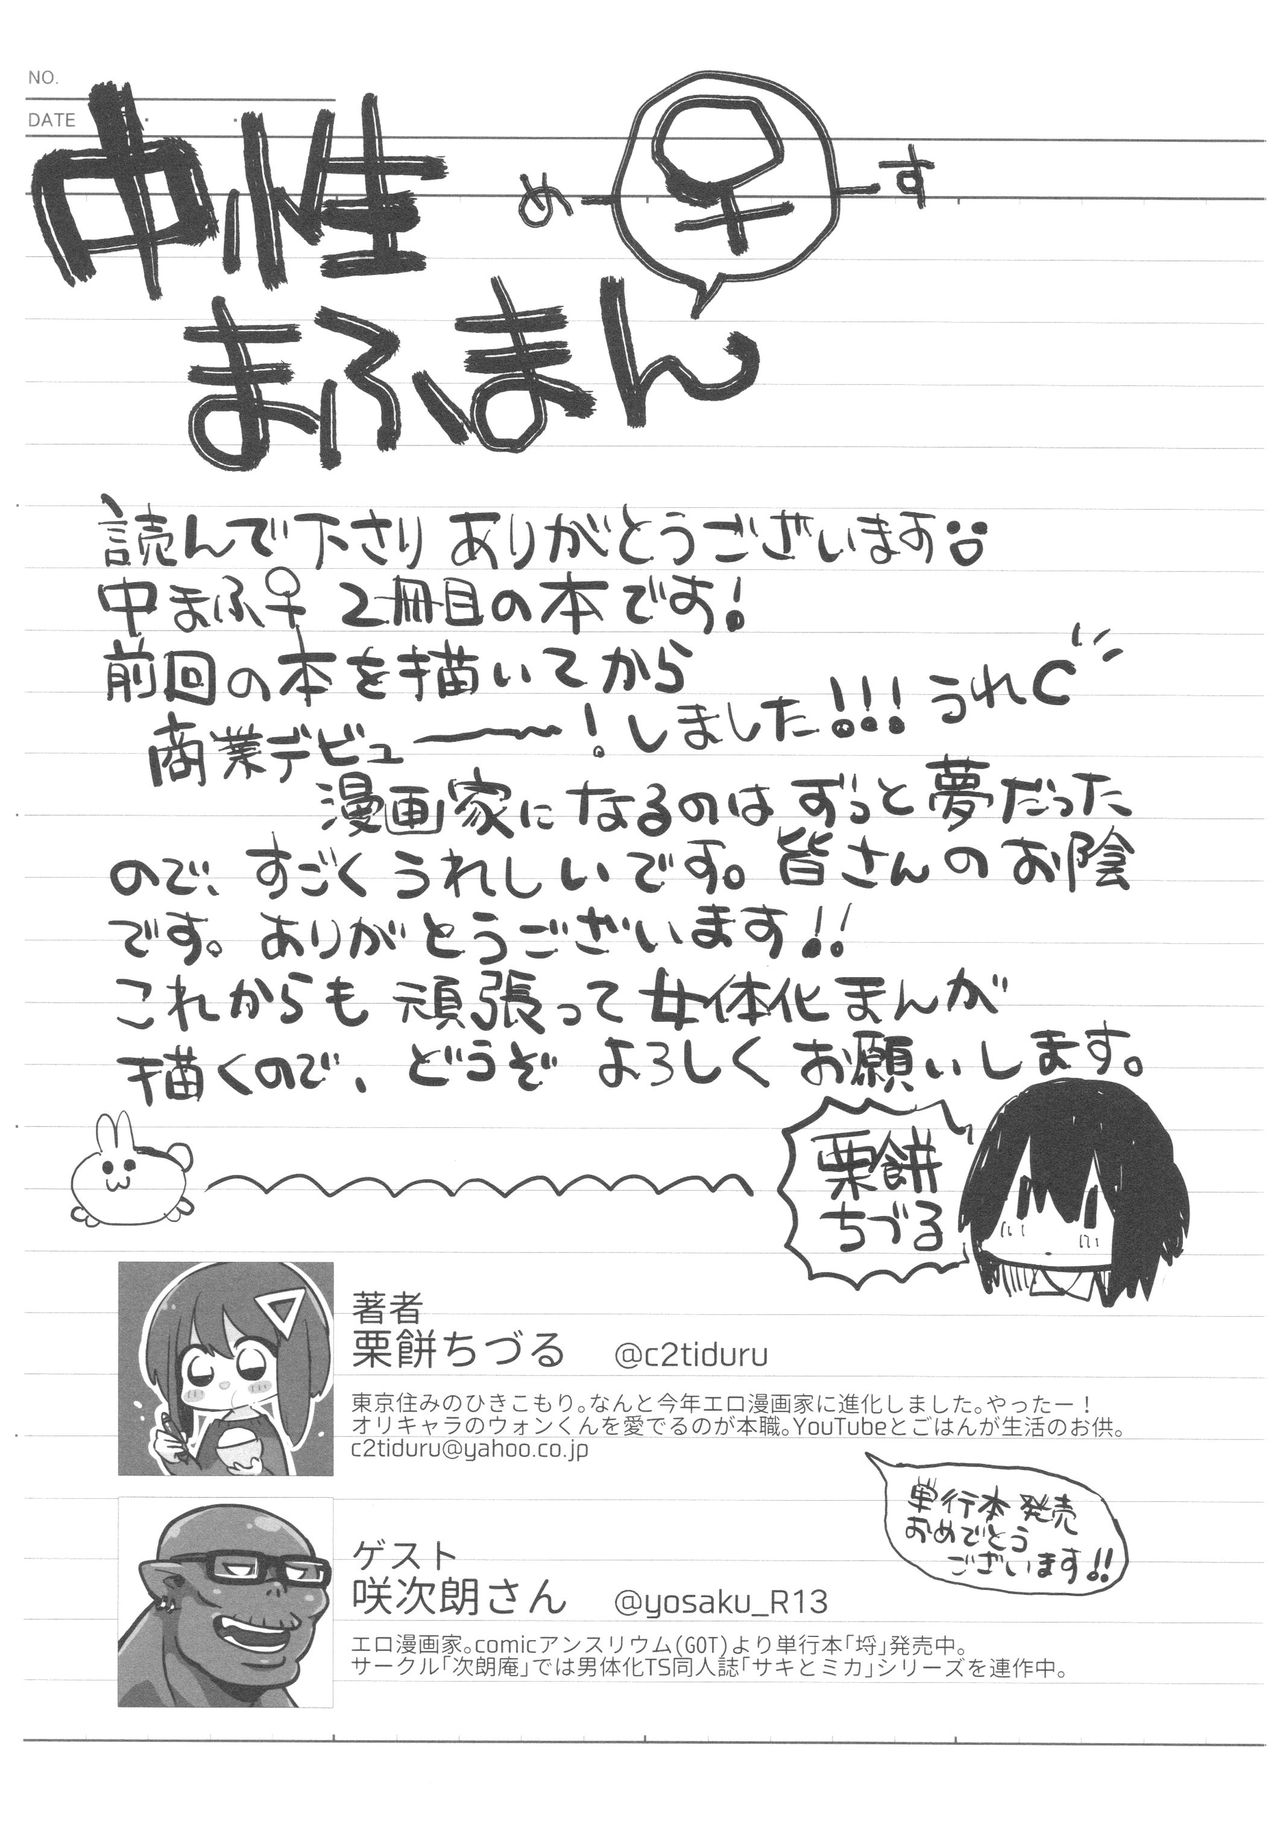 NO.
DATE
中性
め♀す
まふまん
読んで下さり ありがとうございます
中まふ♀ 2冊目の本です!
前回の本を描いてから
商業デビュー〜〜!しました!!! うれC
漫画家になるのは ずっと夢だった
ので、すごくうれしいです。皆さんのお陰
です。ありがとうございます!!
これからも 頑張って女体化まんが
描くので、どうぞ よろしくお願いします。
栗餅
ちづる
著者
栗餅ちづる @c2tiduru
東京住みのひきこもり。なんと今年エロ漫画家に進化しました。やったー!
オリキャラのウォンくんを愛でるのが本職。YouTubeとごはんが生活のお供。
c2tiduru@yahoo.co.jp
単行本 発売
おめでとう
ございます!!
ゲスト
咲次朗さん @yosaku_R13
エロ漫画家。comicアンスリウム(GOT)より単行本「埒」発売中。
サークル「次朗庵」では男体化TS同人誌「サキとミカ」シリーズを連作中。